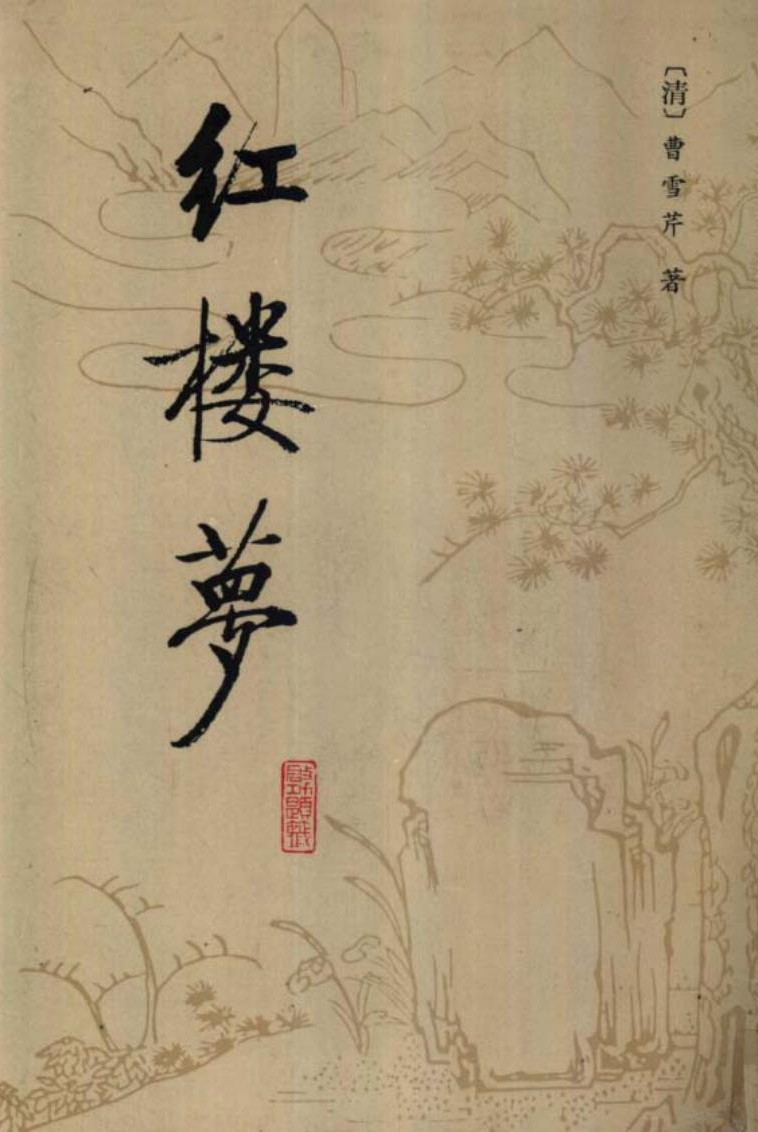 〔清〕曹雪芹 著
红楼夢
啟功題籤